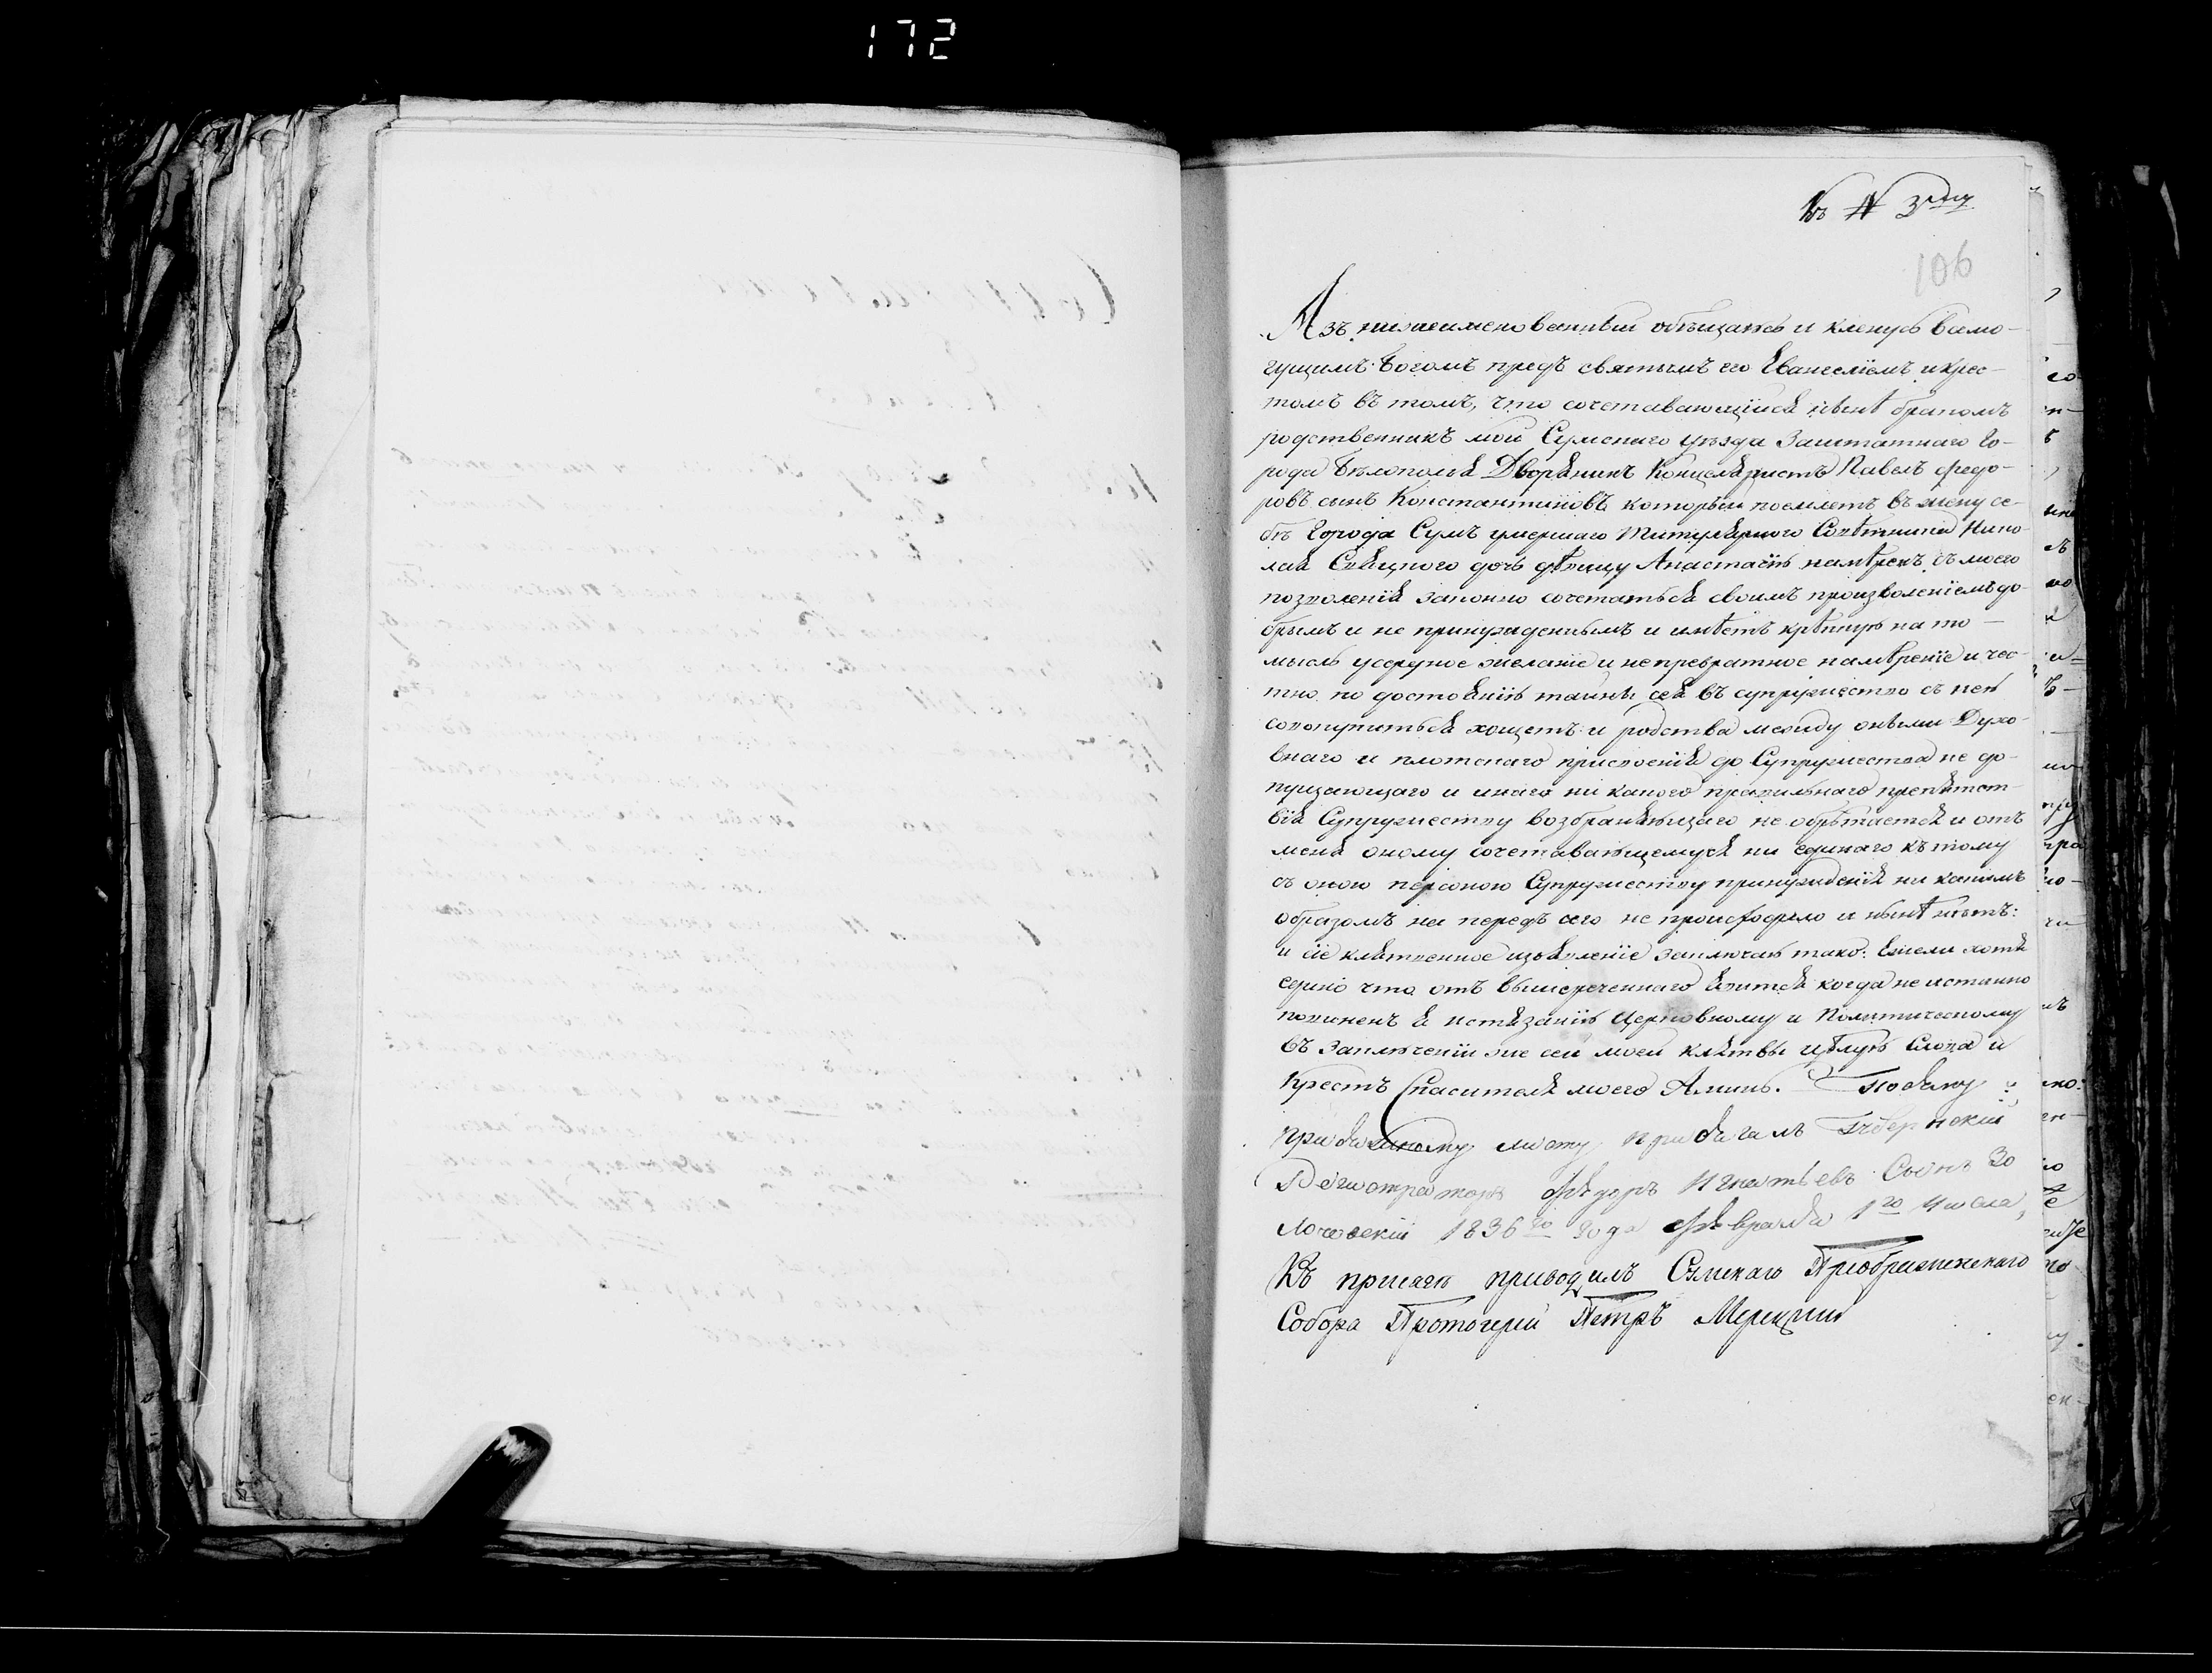 172
Къ № 3му
106
Азъ нижеименованный обѣщаюсь и кленусь всемо-
гущимъ Богомъ предъ святымъ его Евангеліемъ и крес-
томъ въ томъ, что сочетавающійся нынѣ бракомъ
родственникъ мой Сумскаго уѣзда Заштатнаго Го-
рода Бѣлополья Дворянинъ Канцеляристъ Павелъ Федо-
ровъ сынъ Константиновъ который поемлетъ въ жену се-
бѣ Города Сумъ умершаго Титулярного Совѣтника Нико-
лая дочь дѣвицу Анастасію намѣренъ съ моего
позволенія законно сочетаться своимъ произволеніемъ до-
брымъ и не принужденнымъ и имѣетъ крѣпкую на то
мысль усердное желаніе и непревратное намѣреніе и чес-
тно по достоянію тайны сея въ супружество съ нею
совокупиться хощетъ и родства между оными Духо-
внаго и плотскаго присвоенія до Супружества не до-
пущающаго и инаго ни какого правильнаго препятст-
вія Супружеству возбраняющаго не обрѣтается и отъ
меня оному сочетавающемуся ни единаго къ тому
съ оною персоною Супружеству принужденія ни какимъ
образомъ ни передъ сего не происходило и нынѣ нѣтъ:
и сіе клятвенное изъявленіе заключаю тако: Ежели хотя
едино что отъ вышереченнаго явится когда не истинно
повиненъ я истязанію Церковному и Политическому
въ заключеніи же сей моей клятвы цѣлую Слова и
Крестъ Спасителя моего Аминь. Ксему
присяжному листу присягалъ Губернский
Регистраторъ Федоръ Игнатьевъ Сынъ Зо
лочевский 1836го года Февраля 1го Числа,
Къ присягѣ приводилъ Сумскаго Преображенскаго
Собора Протоіерей Петръ